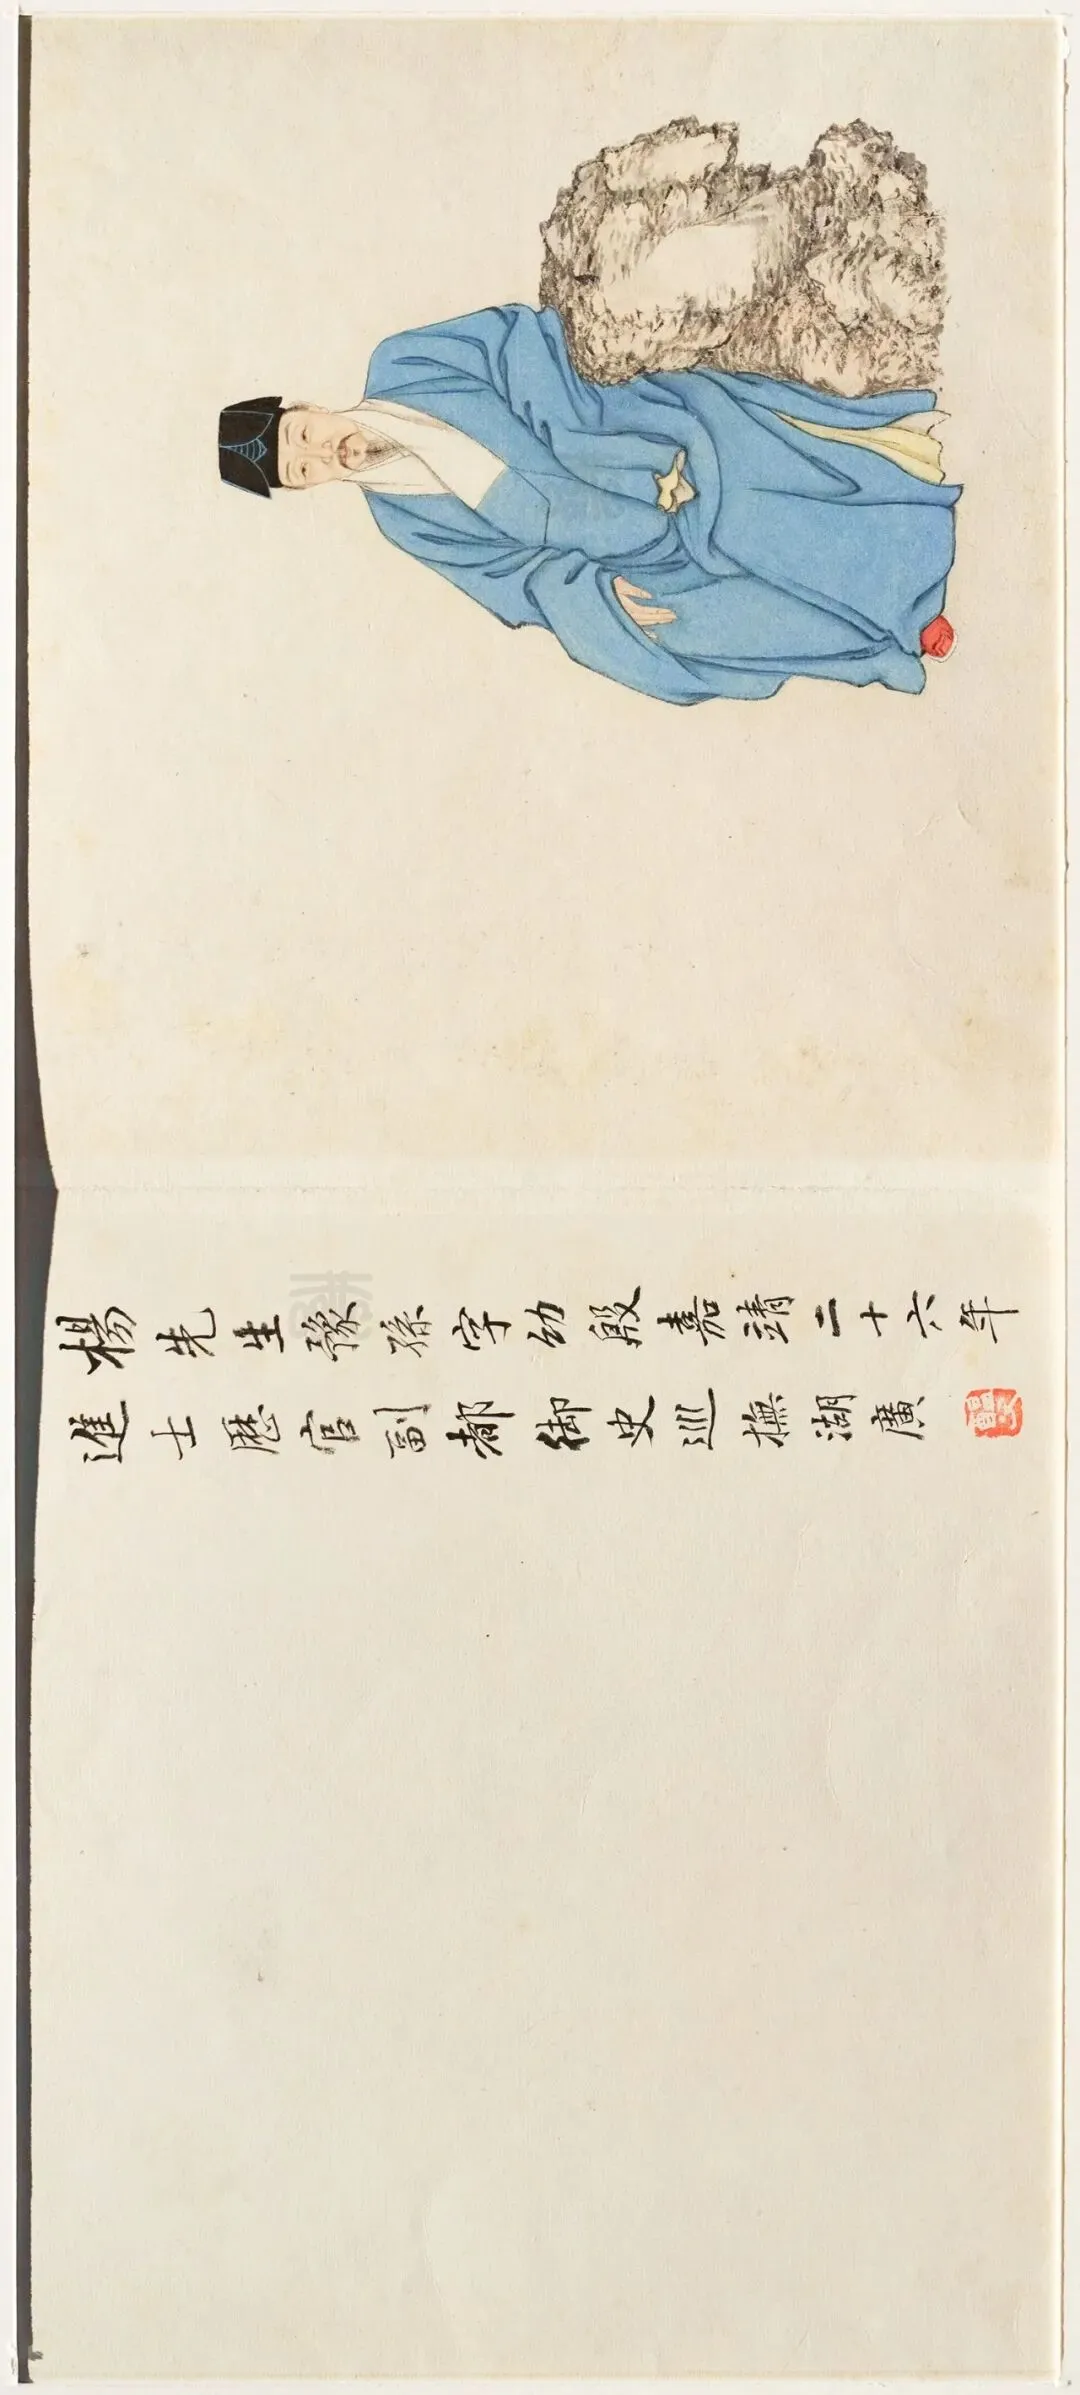 楊先生豫孫字幼殷嘉靖二十六年
進士歷官副都御史巡撫湖廣